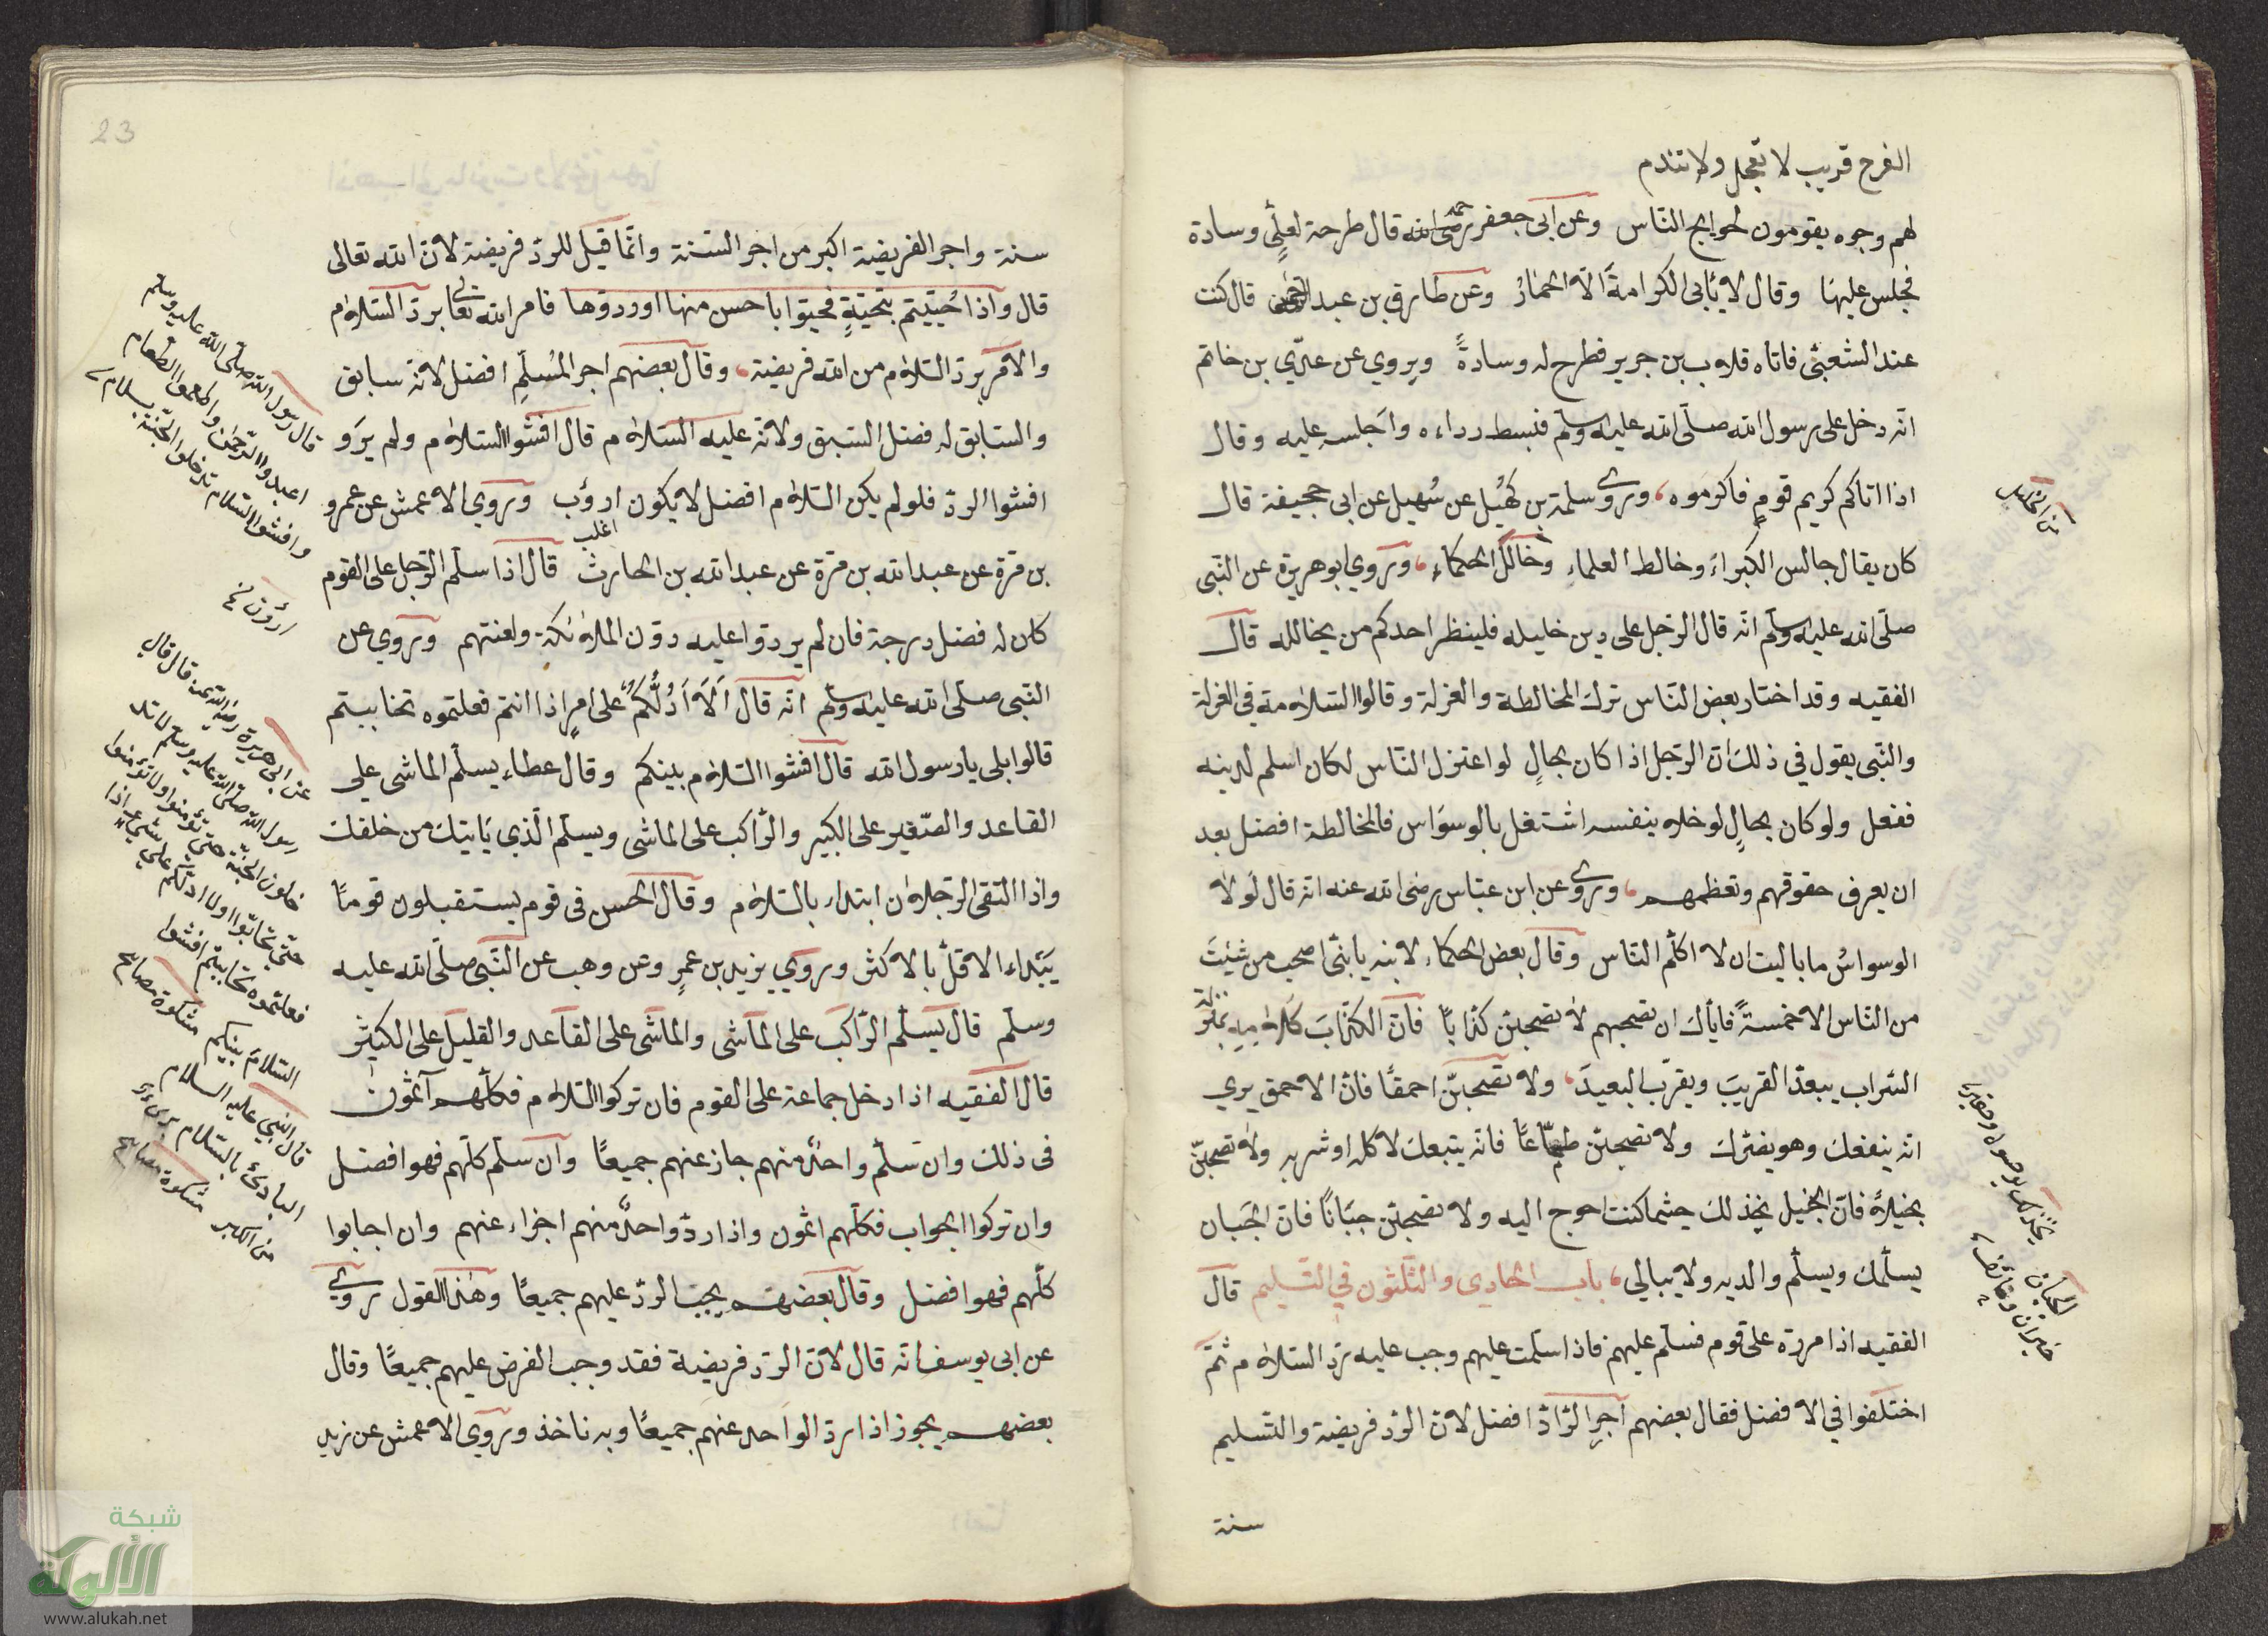 الفرح قريب لا تعجل ولا تندم
لهم وجوه يقومون لحوايج الناس وعن ابى جعفر رضى الله قال طرحة لعلّي وسادة
فجلس عليها وقال لا يأبى الكرامةَ الّا الحمارُ وعن طارق بن عبد الرحمن قال كنت
عند الشعبىّ فاتاه قلاب بن جرير فطرح له وسادةً ويروي عن عدّي بن خاتم
انّه دخل على رسول الله صلّى الله عليه وسلّم فبسط رداءه واجلسه عليه وقال
اذا اتاكم كريم قومٍ فاكرموه وروي سلمة بن كهُيل عن سُهيل عن ابى جحيفة قال
كان يقال جالس الكبراءَ وخالط العلماءِ وخالل الحكماءِ وروي ابو هريرة عن النّبى
صلّى الله عليه وسلّم انّه قال الرّجل على دين خليله فلينظر احدكم من يخالله قال
الفقيه وقد اختار بعض النّاس ترك المخالطة والعزلة وقالوا السّلامة في العزلة
والنّبى يقول في ذلك انّ الرّجل اذا كان بحالٍ لو اعتزل النّاس لكان اسلم لدينه
ففعل ولو كان بحالٍ لو خلا بنفسه اشتغل بالوسوَاس فالمخالطة افضل بعد
ان يعرف حقوقهم وتعظمهم وروي عن ابن عبّاس رضى الله عنه انّه قال لَولا
الوسواسُ ما باليت ان لا اكلّم النّاس وقال بعض الحكماء لابنه يا بنىّ اصحب من شيئتَ
من النّاس الا خمسةً فايأك ان تصحبهم لا تصحبّن كذّابًا فانّ الكذّابَ كلامه بمنزلة
السّراب يبعدّ القريبَ ويقرّب البعيدَ ولا تصحبنّ احمقًا فانّ الاحمق يري
انّه ينفعك وهو يضرّك ولا تصحبنّ طمّاعًا فانّه يتبعك لاكله او شربه ولا تصحبنّ
بخيلاً فانّ البخيل يخذلك حيثما كنت احوج اليه ولا تصحبنّ جبّانًا فانّ الجَبان
يسلّمك ويسلّم والديه ولا يبالى باب الحادي والثّلثون في التّسليم قال
الفقيه اذا مررة على قوم فسلّم عليهم فاذا سلّمت عليهم وجب عليه ردّ السّلام ثمّ
اختلفوا في الافضل فقال بعضهم اجر الرّادّ افضل لانّ الرّد فريضة والتّسليم
سنة
يخذلك
الجبان
23
سنة واجر الفريضة اكبر من اجر السّنة وانّما قيل للردّ فريضة لانّ الله تعالى
قال واذا حُيّيتم بتحيّةٍ فحيّوا باحسن منها او ردّوها فامر الله تعالى بردّ السّلام
والامر بردّ السّلام من الله فريضة وقال بعضهم اجر المُسلّمِ افضل لانّه سابق
والسّابق له فضل السّبق ولانّه عليه السّلام قال افشوا السّلام ولم يرَو
افشوا الردّ فلو لم يكن السّلام افضل لا يكون ارؤب وروي الاعمش عن عمرو
اغلب
بن مرّة عن عبد الله بن مرّة عن عبد الله بن الحارث قال اذا سلّم الرّجل على القوم
كان له فضل درجة فان لم يردّوا عليه ردّون الملائكة ولعنتهم وروي عن
النّبى صلّى الله عليه وسلّم انّه قال اَلَا اَدُلّكُمْ على امرٍ اذا انتم فعلتموه تحابيتم
قالوا بلى يا رسول الله قال افشوا السّلام بينكم وقال عطاء يسلّم الماشى على
القاعد والصّغير على الكبير والرّاكب على الماشى ويسلّم الّذي يَايتك من خلفك
واذا التقى الرّجلان ابتداء بالسّلام وقال الحسن فى قوم يستقبلون قومًا
يبَتداء الاقلّ بالاكثر وروي يزيد بن عمرٍ وعن وهب عن النّبى صلّى الله عليه
وسلّم قال يسلّم الرّاكب على الماشى والماشى على القاعد والقليل على الكثير
قال الفقيه اذا دخل جماعة على القوم فان تركوا السّلام فكلّهم آثمون
فى ذلك وان سَلّم واحدٌ منهم جاز عنهم جميعًا وان سَلّم كلّهم فهو افضل
وان تركوا الجواب فكلّهم اثمون واذا ردّ واحدٌ منهم اجزاء عنهم وان اجابوا
كلّهم فهو افضل وقال بعضهم يجب الردّ عليهم جميعًا وهٰذا القول روي
عن ابى يوسف انّه قال لانّ الردّ فريضة فقد وجب الفرض عليهم جميعًا وقال
بعضهم يجوز اذا ردّ الواحد عنهم جميعًا وبه ناخذ وروي الاعمش عن زيد
قال رسول اللّه صلّى اللّه عليه وسلم
اعبدوا الرّحمٰن واطعموا الطّعام
وافشوا السّلام تدخلوا الجنّة بسلام
عن ابى هريرة رضى اللّه عنه قال قال
رسول اللّه صلّى اللّه عليه وسلم لا تد
خلون الجنّة حتّى تؤمنوا ولا تؤمنوا
حتّى تحابّوا اولا ادلّكم على شيئ اذا
فعلتموه تحابيتم افشوا
السّلام بينكم مشكوة مصابح
قال النبي عليه السلام
البأدئ بالسّلام برئ
من الكبر مشكوة مصابح
شبكة
الألوكة
www.alukah.net